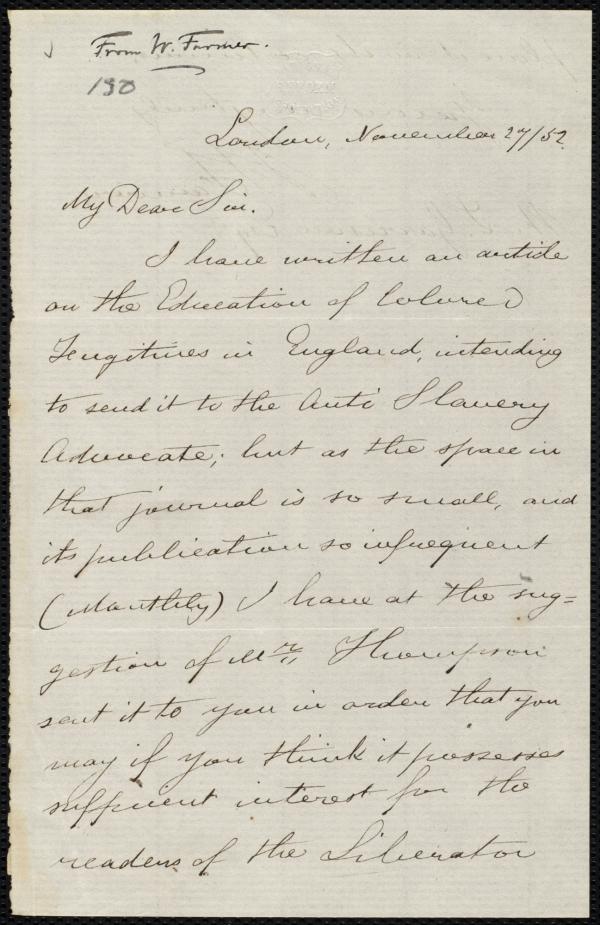 From W. Farmer.
180
London, November 27/52
My Dear Sir.
I have written an article
on the Education of Colored
Fengitives in England, intending
to send it to the Anti Slavery
Advocate; but as the space in
that journal is so small, and
its publication so infrequent
(Monthly) I have at the sug=
gestion of Mr. Thompson
sent it to you in order that you
may if you think it possesses
suffucient interest for the
readers of the Liberator